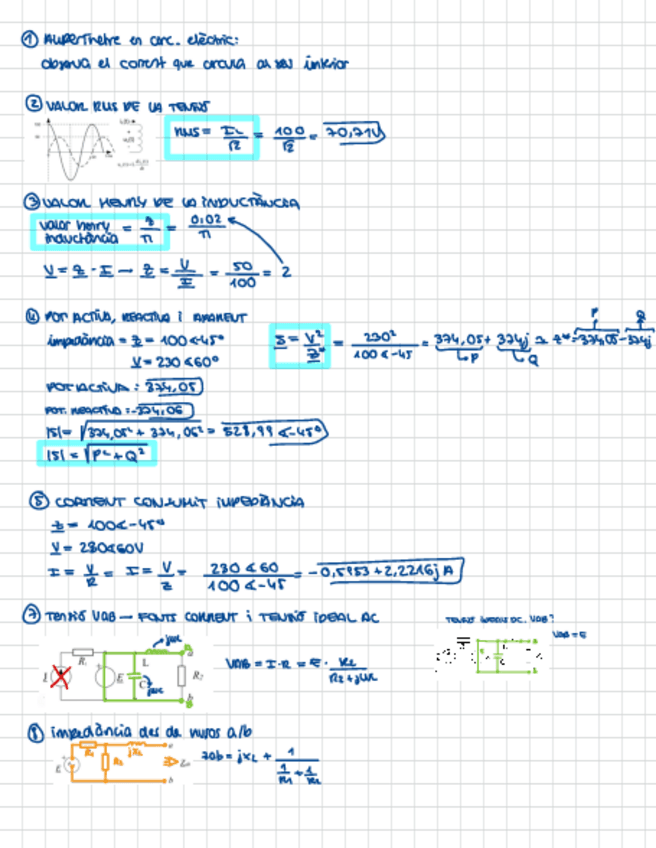 ① AMPERÍMETRE en circ. elèctric:
observa el corrent que circula al seu interior
② VALOR RMS DE LA TENSIÓ
RMS = / √2 = 100 / √2 = 70,71V
③ VALOR HENRY DE LA INDUCTÀNCIA
valor henry inductància = 2 / π = 0,02 / π
V = Z · I → Z = V / I = 50 / 100 = 2
④ POT ACTIVA, REACTIVA i APARENT
impedància = Z = 100∠-45º
V = 230∠60º
S = V² / Z* = 230² / 100∠-45 = 374,05 + 374j → Z* = 374,05 - 374j
P Q
P Q
POT ACTIVA: 374,05
POT. REACTIVA: -374,06
|S| = √374,05² + 374,06² = 528,99∠-45º
|S| = √P² + Q²
⑤ CORRENT CONSUMIT IMPEDÀNCIA
Z = 100∠-45º
V = 230∠60V
I = V / R = I = V / Z = 230∠60 / 100∠-45 = -0,5953 + 2,2216j A
⑦ TENSIÓ VAB → FONTS CORRENT i TENSIÓ IDEAL AC
TENSIÓ DC. VAB?
VAB = E
jωL
a
R₁ E L C R₂
jωC
b
VAB = I·R = E · R₂ / R₂ + jωL
⑧ impedància des de nusos a/b
R₁ jXL a
E R₂
b
Zab = jXL + 1 / 1/R₁ + 1/R₂